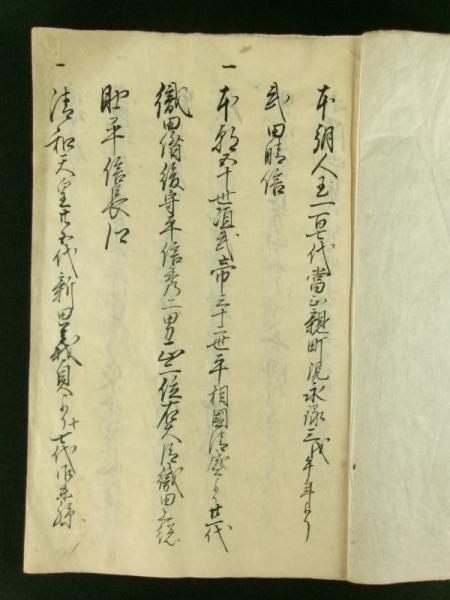 本朝人王一百七代當正親町院永禄三戊午年より
武田晴信
一 本朝五十世桓武帝三十二世平相國清盛より廿一代
織田備後守平信秀二男正一位右大臣織田上総
助平信長公
一 清和天皇廿五代新田義貞より十七代後胤